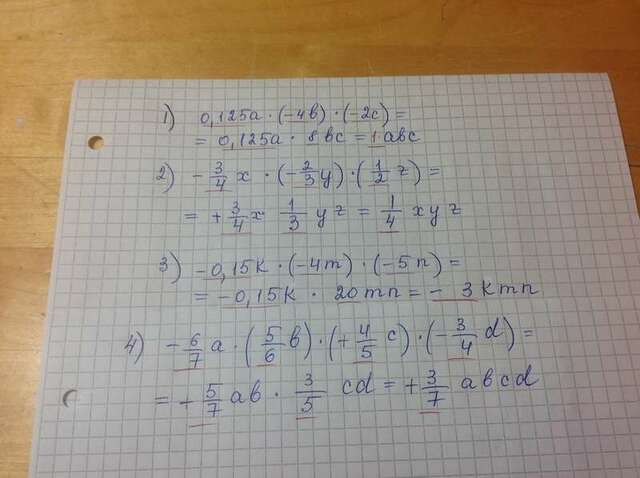 1) 0,125a · (-4b) · (-2c) =
= 0,125a · 8bc = 1abc
2) - 3/4 x · (- 2/3 y) · (1/2 z) =
= + 3/4 x 1/3 yz = 1/4 xyz
3) -0,15k · (-4m) · (-5n) =
= -0,15k · 20mn = - 3kmn
4) - 6/7 a · (5/6 b) · (+ 4/5 c) · (- 3/4 d) =
= + 5/7 ab · 3/5 cd = + 3/7 abcd